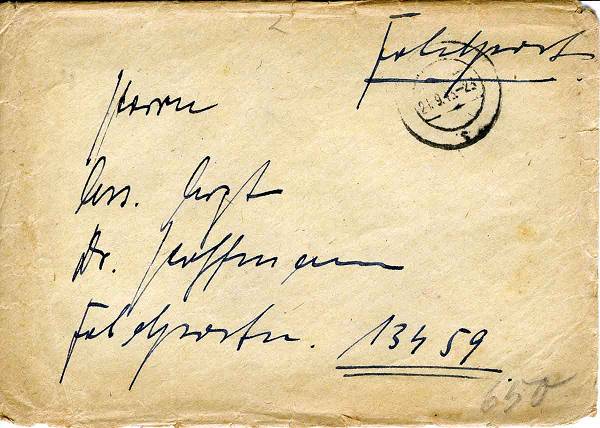 Feldpost
21.9.43-23
Herrn
Ass. Arzt
Dr. Hoffmann
Feldpostn. 13459.
650